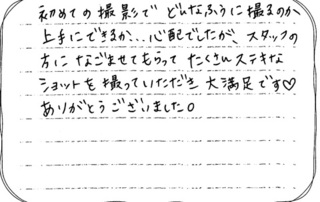 初めての撮影で どんなふうに撮るのか
上手にできるか...心配でしたが、スタッフの
方に なごませてもらって たくさんステキな
ショットを 撮っていただき 大満足です♡
ありがとうございました。